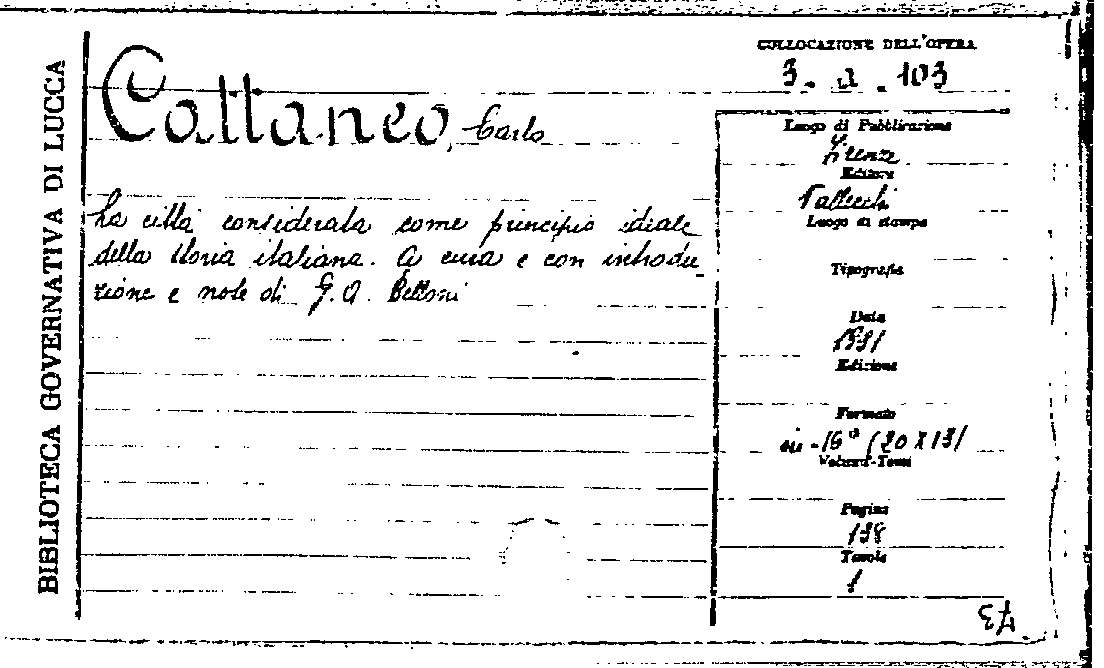 BIBLIOTECA GOVERNATIVA DI LUCCA
COLLOCAZIONE DELL'OPERA
3. a. 103
Cattaneo, Carlo
La città considerata come principio ideale
della storia italiana. A cura e con introdu_
zione e note di G. A. Belloni
Luogo di Pubblicazione
Firenze
Editore
Vallecchi
Luogo di stampa
Tipografia
Data
1931
Edizione
Formato
in-16° (20 x 13)
Volumi-Tomi
Pagine
198
Tavole
1
73